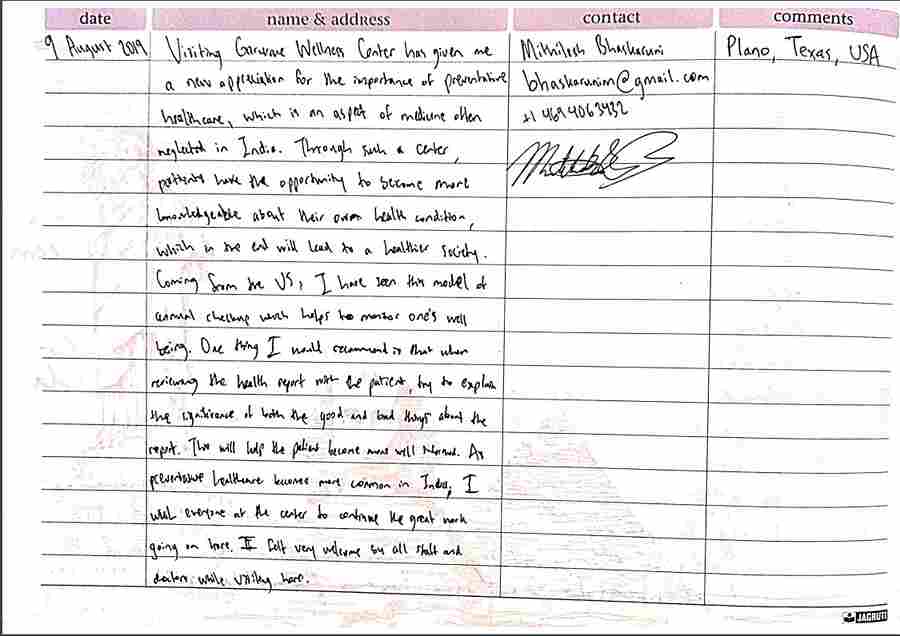 date name & address contact comments
9 August 2019 Visiting Garware Wellness Center has given me Mithilesh Bhaskaruni Plano, Texas, USA
a new appreciation for the importance of preventative bhaskarunim@gmail.com
healthcare, which is an aspect of medicine often +1 4694063432
neglected in India. Through such a center,
patients have the opportunity to become more
knowledgeable about their own health condition,
which in the end will lead to a healthier society.
Coming from the US, I have seen this model of
annual checkup which helps to monitor one's well
being. One thing I would recommend is that when
reviewing the health report with the patient, try to explain
the significance of both the good and bad things about the
report. This will help the patient become more well informed. As
preventative healthcare becomes more common in India, I
wish everyone at the center to continue the great work
going on here. I felt very welcome by all staff and
doctors while visiting here.
JAGRUTI